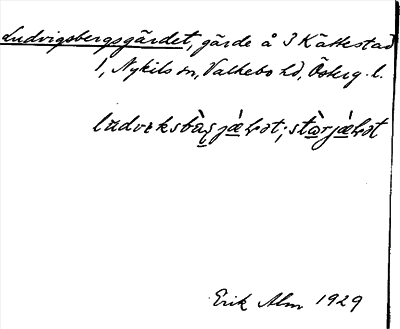 Ludvigsbergsgärdet, gärde å 3 Kättestad
1, Nykils sn, Valkebo hd, Österg. l.
Erik Alm 1929